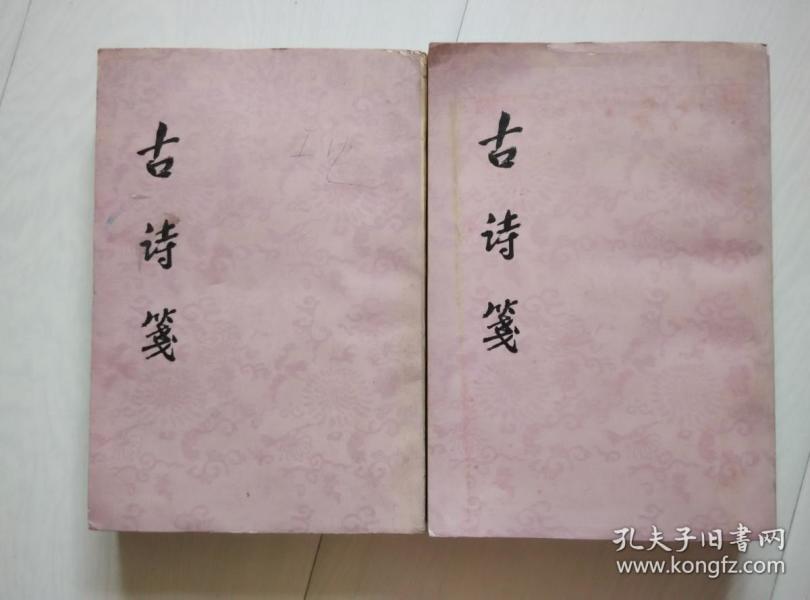 古诗笺
古诗笺
孔夫子旧書网
www.kongfz.com